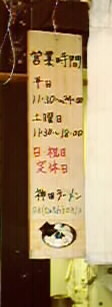 営業時間
平日
11:30~24:00
土曜日
11:30~18:00
日・祝日
定休日
神田ラーメン